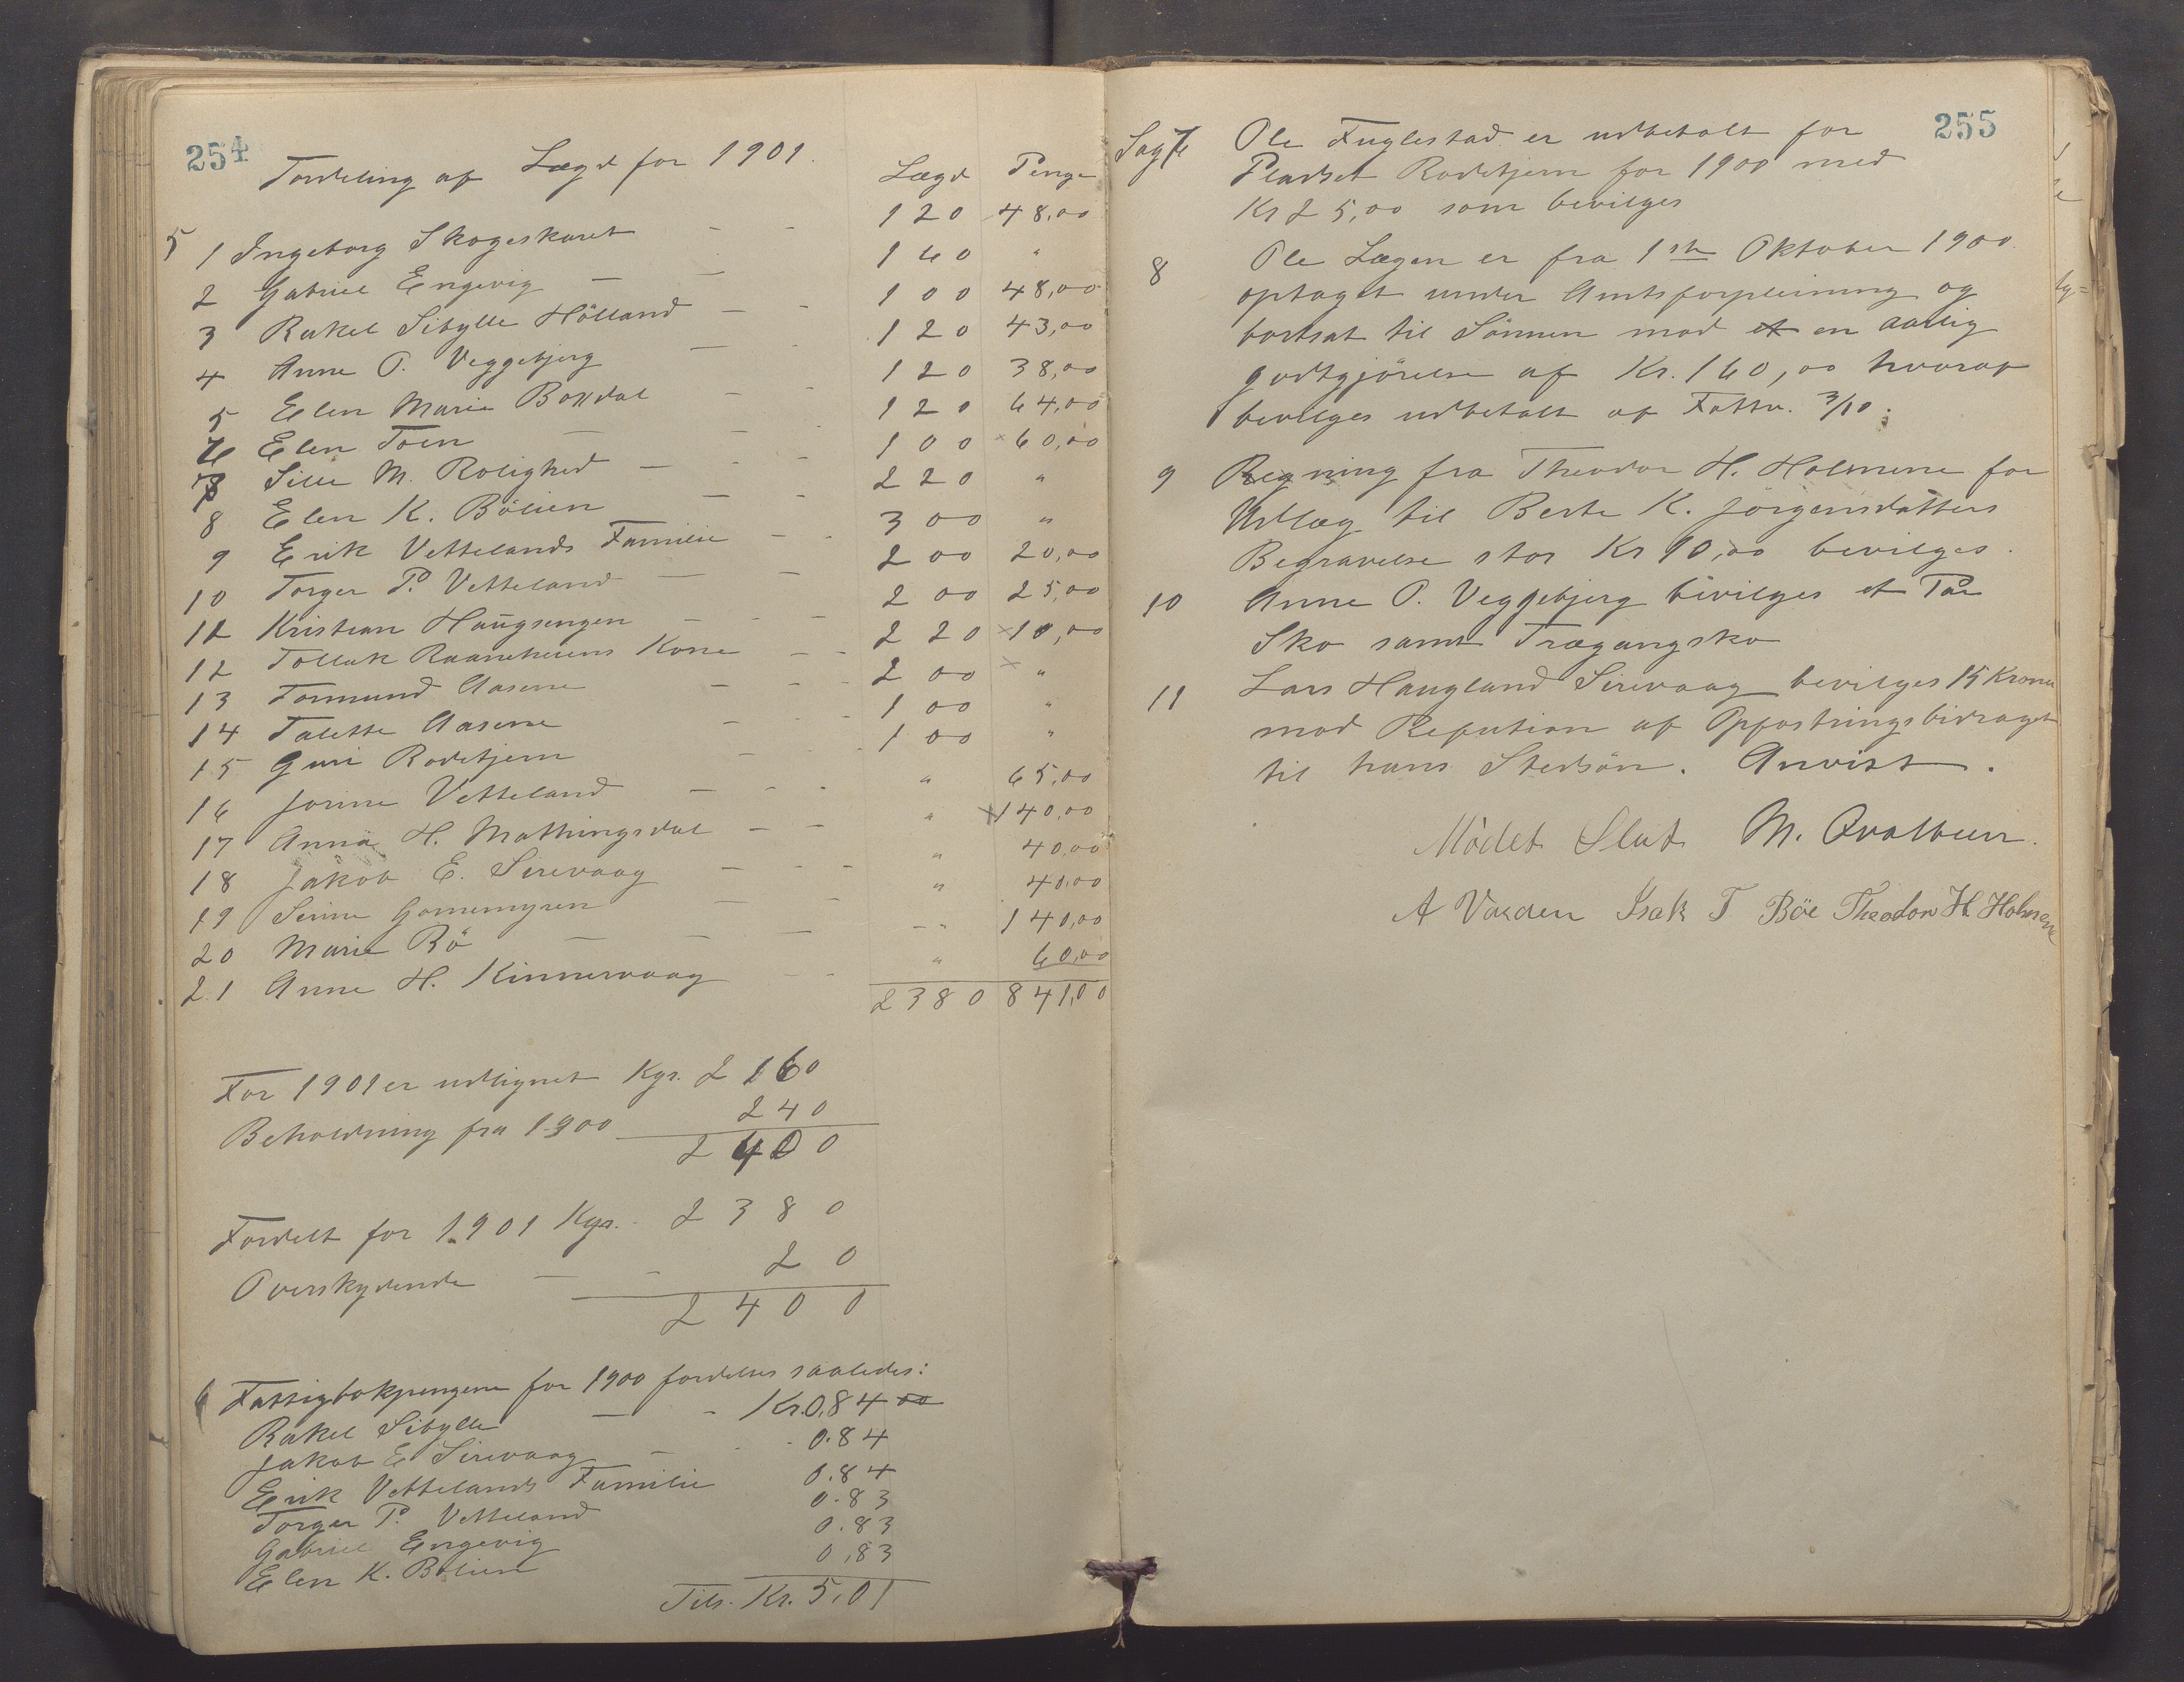 254
Fordeling af Lægd for 1901.
Lægd Penge
5
1 Ingeborg Skogeskaret — - 120 48,00
2 Gabriel Engevig — — 160 "
3 Rakel Sibylle Hölland — - 100 48,00
4 Anne P. Veggebjerg — - 120 43,00
5 Elen Marie Bordal — - 120 38,00
6 Elen Toen — - 120 64,00
7 Sille M. Rolighed — - - 100 × 60,00
8 Elen K. Bölien — - 220 "
9 Erik Vettelands Familie - - 300 "
10 Torger P. Vetteland — — 200 20,00
11 Kristian Haugsengen - - - 200 25,00
12 Tollak Raaneheiens Kone - - 220 × 10,00
13 Tormund Aasene - - - 200 × "
14 Talette Aasene - - - 100 "
15 Guri Rodetjern - - - 100 "
16 Jorine Vetteland - - - " 65,00
17 Anna H. Mathingsdal - - " × 140,00
18 Jakob E. Sirevaag - - - " 40,00
19 Serine Gomemyren - - " 40,00
20 Marie Bö — — — - - 140,00
21 Anne H. Kinnervaag - - " 60,00
2380 841,00
For 1901 er udlignet Kgr. 2160
Beholdning fra 1900 240
2400
Fordelt for 1901 Kgr. 2380
Overskydende — - 20
2400
6 Fattigbokpengene for 1900 fordeles saaledes:
Rakel Sibylle — - Kr. 0,84 00
Jakob E Sirevaag — - - 0.84
Erik Vettelands Familie 0.84
Torger P. Vetteland 0.83
Gabriel Engevig 0.83
Elen K. Bölien 0,83
Tils. Kr. 5,01
255
Sag 7 Ole Fuglestad er udbetalt for
Pladset Rodetjern for 1900 med
Kr 25,00 som bevilges
8 Ole Lægen er fra 1ste Oktober 1900
optaget under Amtsforpleining og
bortsat til Sönnen mod et en aarlig
godtgjörelse af Kr. 160,00 hvoraf
bevilges udbetalt af Fattv. 3/10.
9 Regning fra Theodor H. Holmene for
Udlæg til Berte K. Jörgensdatters
Begravelse stor Kr 10,00 bevilges.
10 Anne P. Veggebjerg bevilges et Par
Sko samt Trægangsko
11 Lars Haugland Sirevaag bevilges 15 Kroner
mod Refution af Opfostringsbidraget
til hans Stedsön. Anvist.
Mödet Slut M. Qvalbein.
A Varden Isak T Böe Theodor H. Holmene